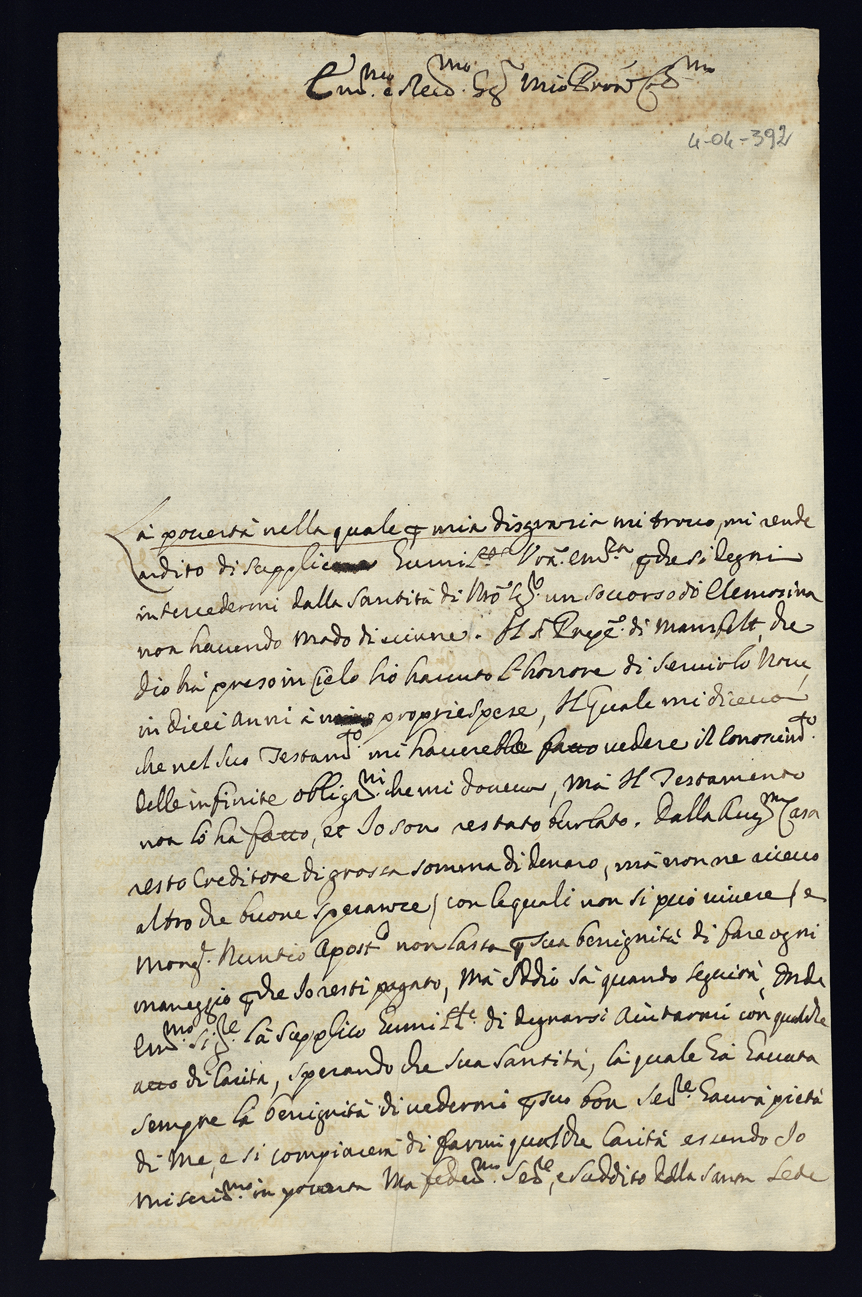 Em.mo e Reu.mo Sig.r mio Pron Col.mo
4-04-392
La pouertà nella quale p mia disgrazia mi trouo, mi rende
ardito di supplic Humil.te Vra em.za p che si degni
intercedermi dalla Santità di Nro Sig.re un soccorso di Elemosina
non hauendo modo di uiuere. Il s.r Prępe di Mansfelt, che
Dio hà preso in Cielo hò hauuto l'honore di seruirlo Noue,
in dieci Anni à proprie spese, Il Quale mi diceua
che nel suo Testam.to mi hauerebbe fatto uedere il Conoscim.to
delle infinite oblig.ni che mi doueua, mà Il Testamento
non lo hà fatto, et Io son restato burlato. Dalla Aug.ma Casa
resto Creditore di grossa somma di denaro, mà non ne riceuo
altro che buone speranze / con le quali non si può uiuere / e
Mons.r Nuntio Apost.o non lassa p sua benignità di fare ogni
maneggio p che Io resti pagato, Mà Iddio sà quando seguirà, Onde
Em.mo Sig.re la supplico Humil.te di degnarsi Aiutarmi con qualche
atto di Carità, sperando che sua Santità, la quale hà hauuta
sempre la benignità di uedermi p suo bon Se.re haurà pietà
di Me, e si compiacerà di farmi qualche Carità essendo Io
miseri.mo in pouertà Ma fede.mo Se.re, e suddito della Santa Sede